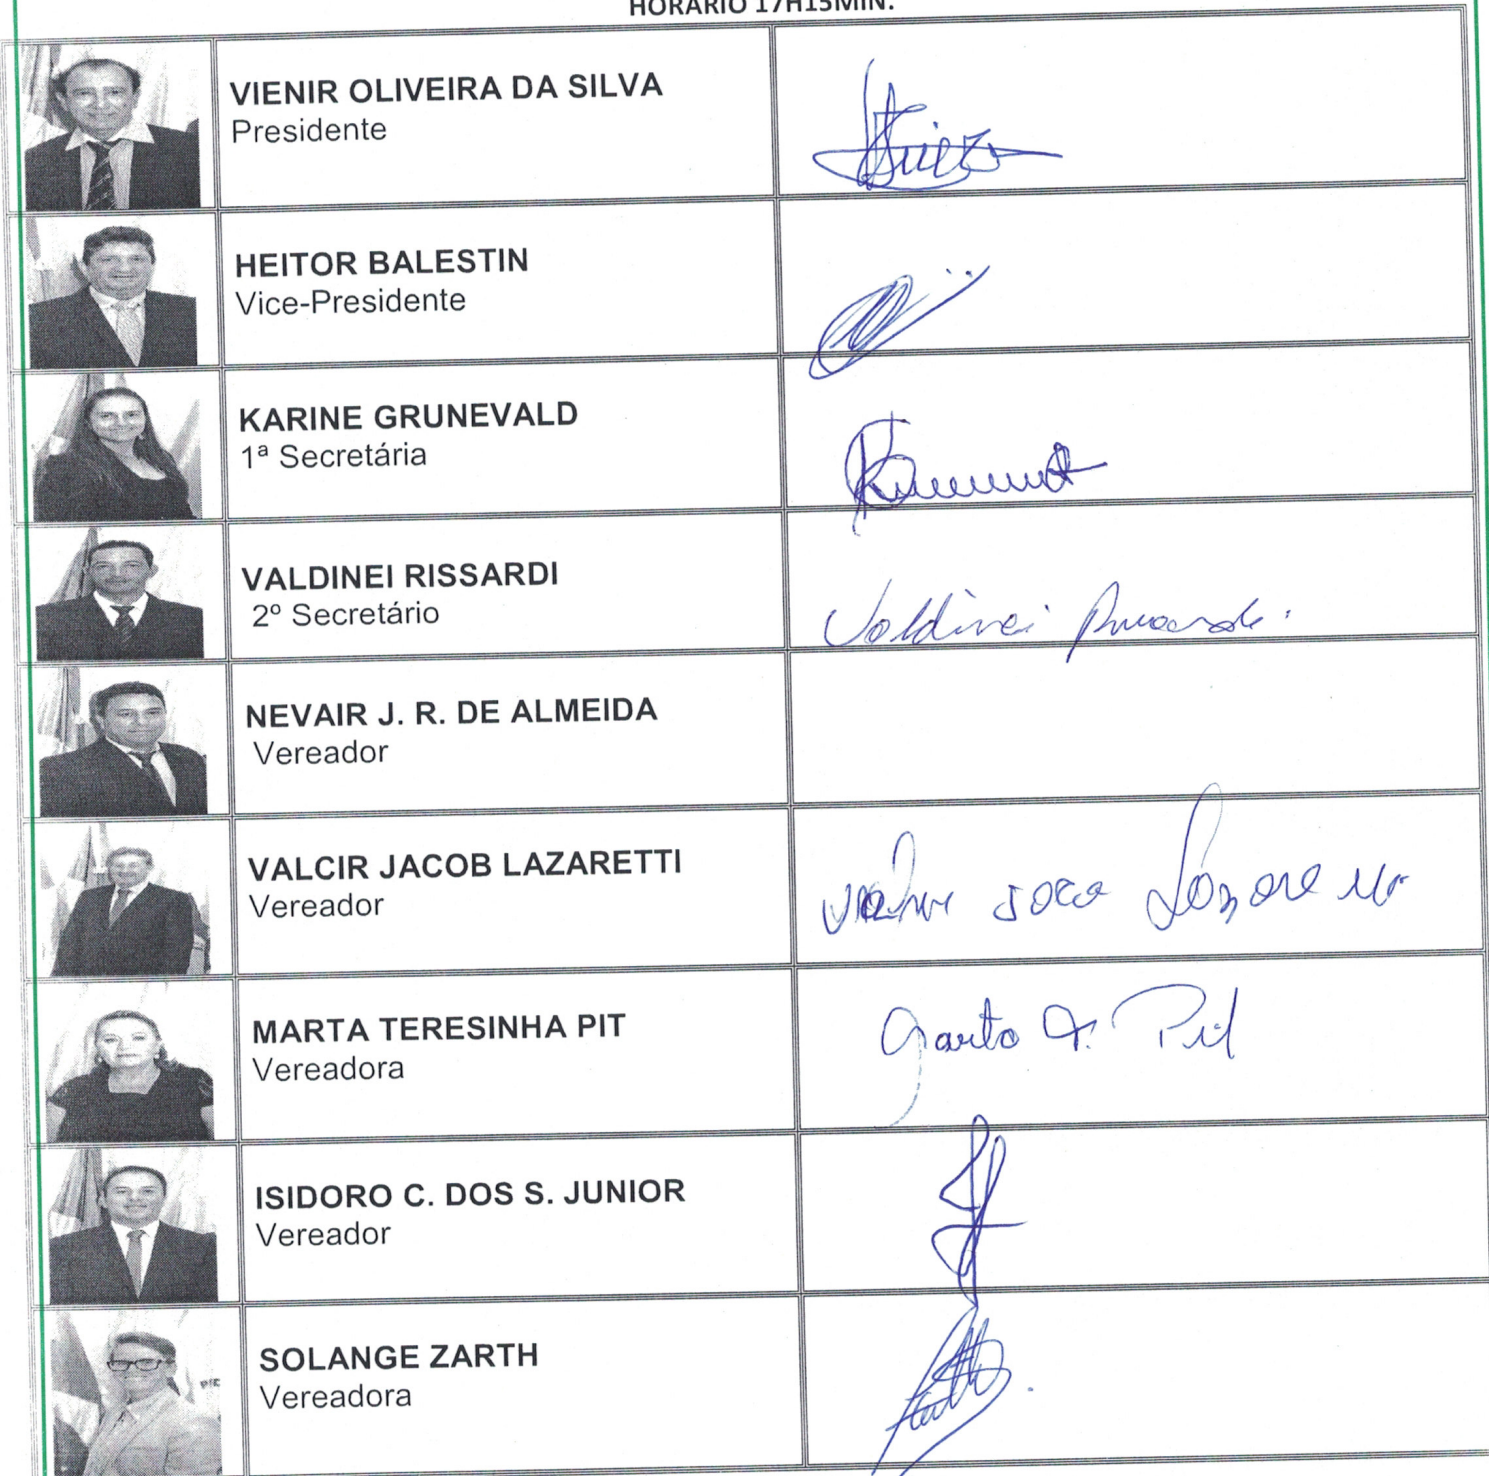 HORÁRIO 17H15MIN.
VIENIR OLIVEIRA DA SILVA
Presidente
HEITOR BALESTIN
Vice-Presidente
KARINE GRUNEVALD
1ª Secretária
VALDINEI RISSARDI
2º Secretário
Valdinei
NEVAIR J. R. DE ALMEIDA
Vereador
VALCIR JACOB LAZARETTI
Vereador
MARTA TERESINHA PIT
Vereadora
Marta T. Pit
ISIDORO C. DOS S. JUNIOR
Vereador
SOLANGE ZARTH
Vereadora